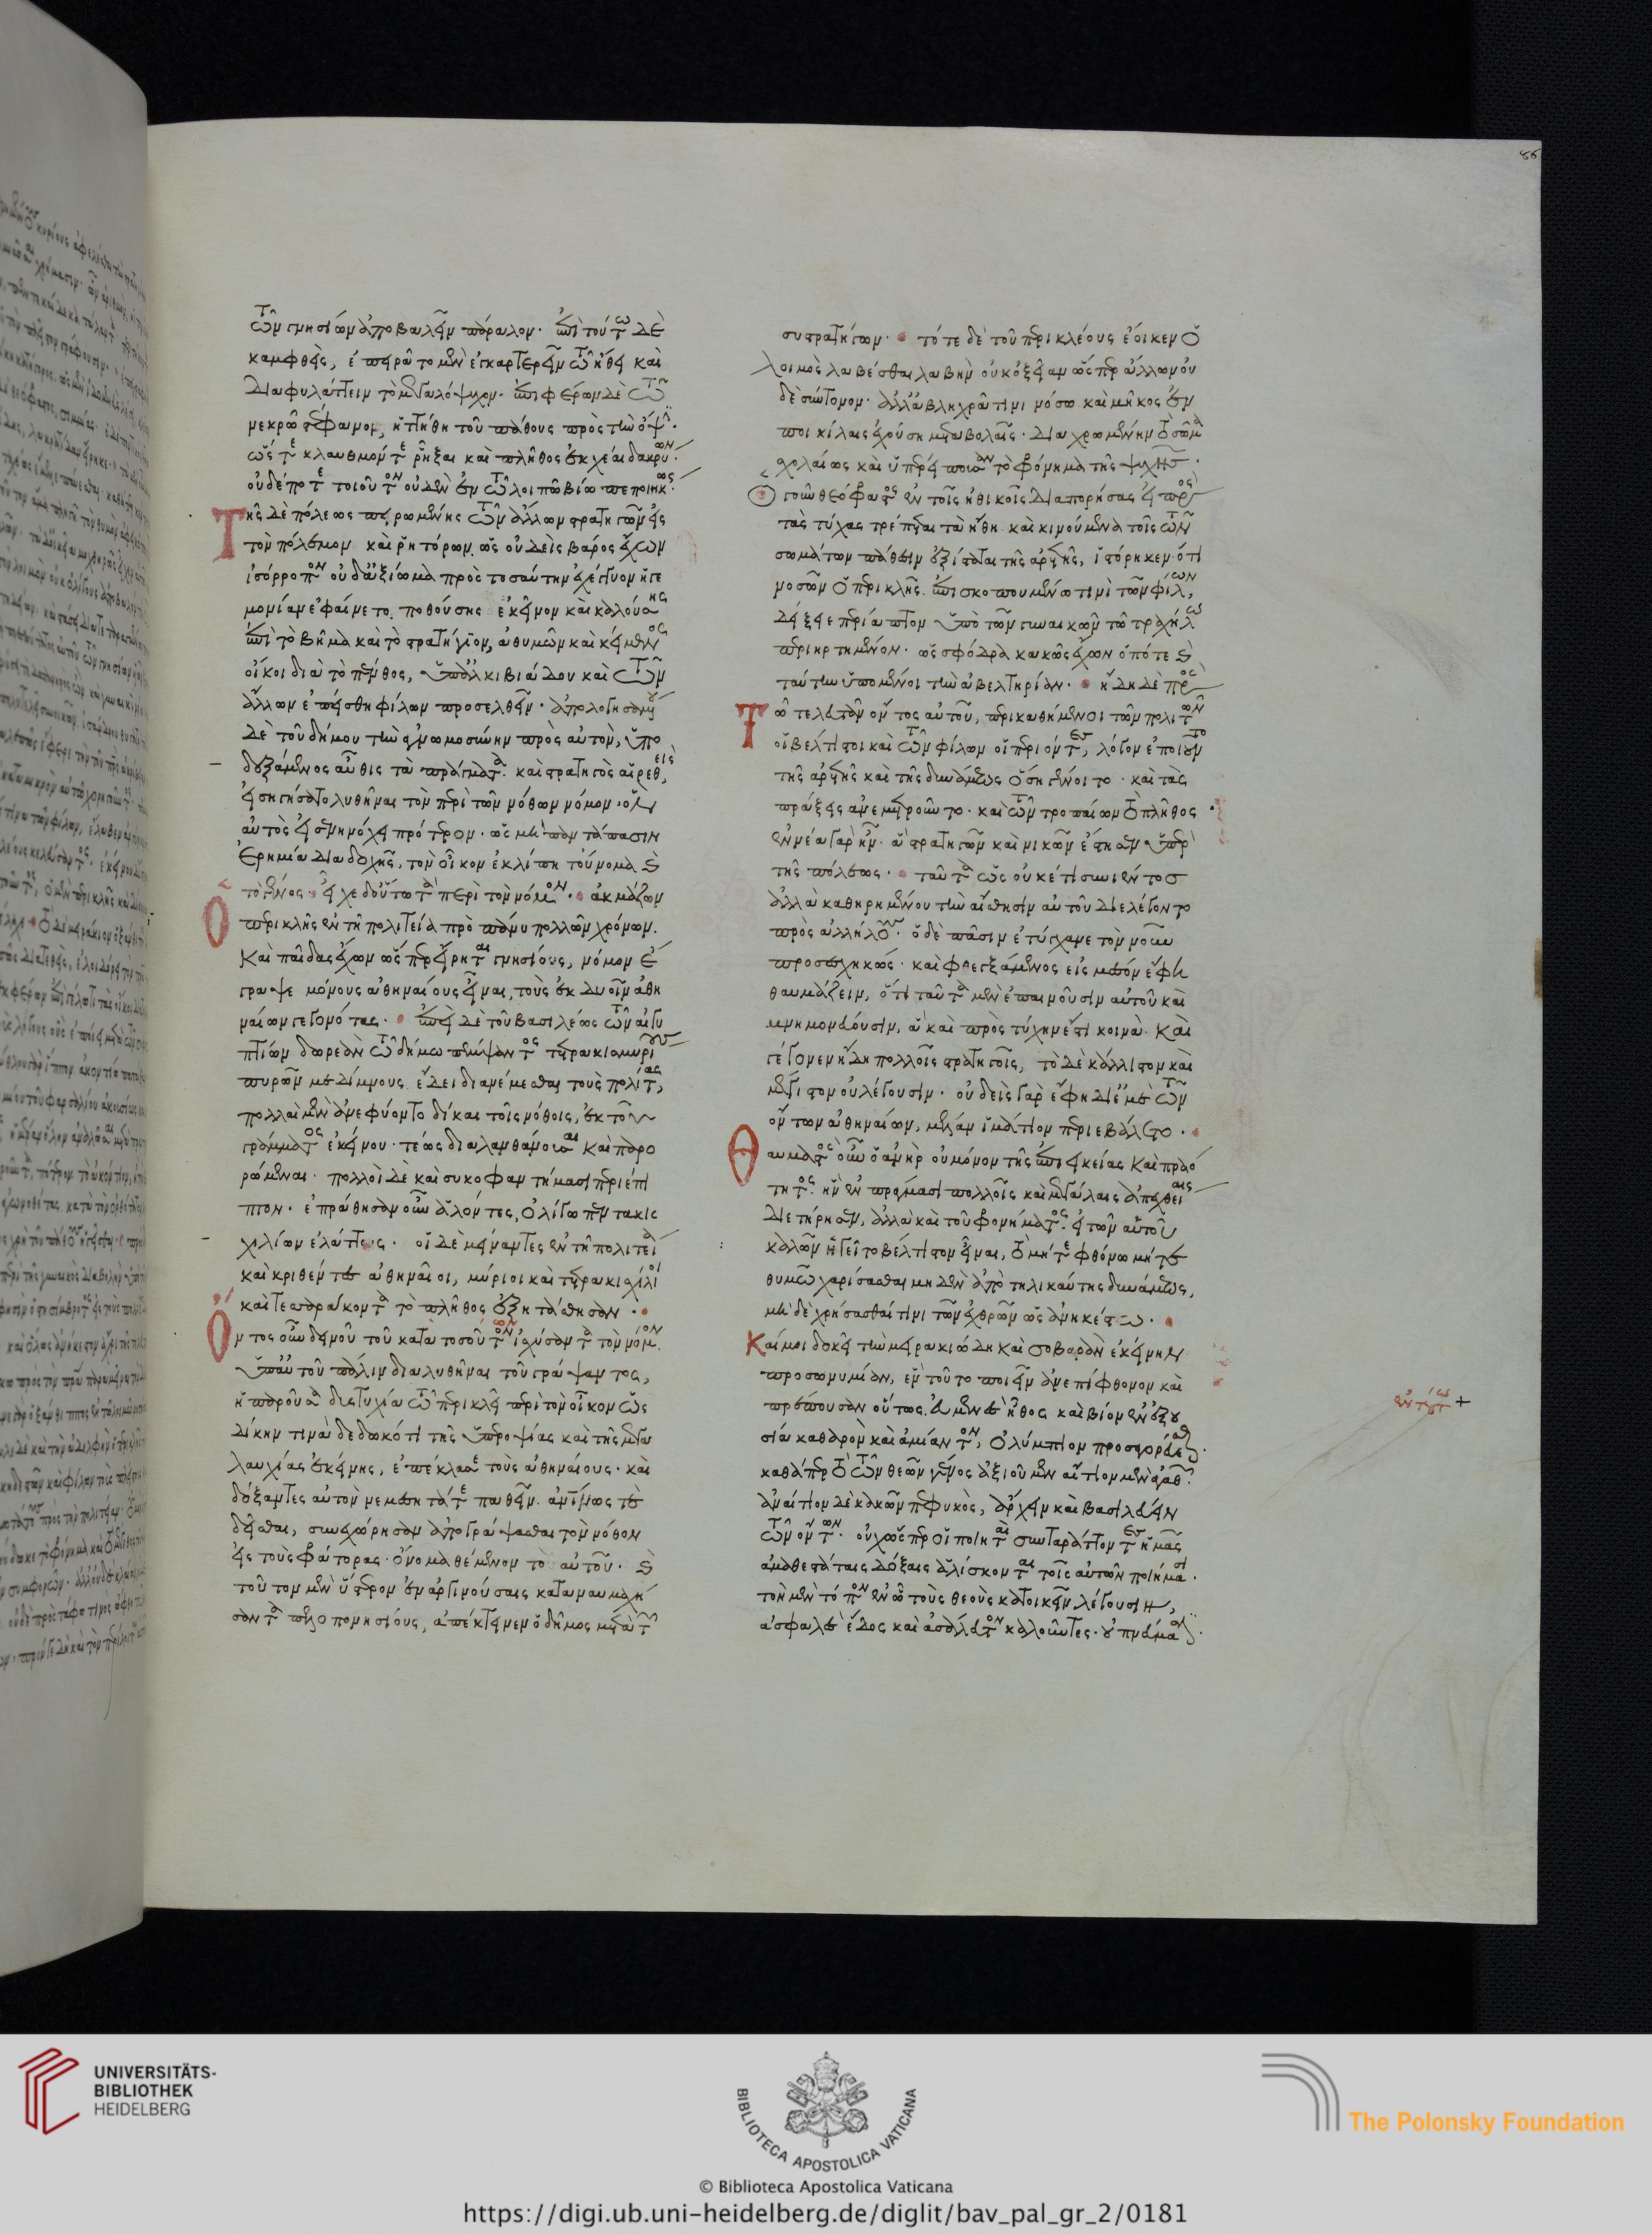 86
τῶν γνησίων ἀποβαλεῖν πάραλον· ἐπὶ τούτω δὲ
καμφθεὶς, ἐπειρᾶτο μὲν ἐγκαρτερεῖν τῶ ἤθει καὶ
διαφυλάττειν τὸ μεγαλόψυχον· ἐπιφέρων δὲ τῶ
νεκρῶ στέφανον, ἡττήθη τοῦ πάθους πρὸς τὴν ὄψιν·
ὥστε κλαυθμόν τε ῥῆξαι καὶ πλῆθος ἐκχέαι δακρύων·
οὐδέποτε τοιοῦτον οὐδὲν ἐν τῶ λοιπῶ βίω πεποιηκώς·
Τῆς δὲ πόλεως πειρωμένης τῶν ἄλλων στρατηγῶν εἰς
τὸν πόλεμον καὶ ῥητόρων, ὡς οὐδεὶς βάρος ἔχων
ἰσόρροπον οὐδ' ἀξίωμα πρὸς τοσαύτην ἐχέγγυον ἡγε
μονίαν ἐφαίνετο· ποθούσης ἐκεῖνον καὶ καλούσης
ἐπὶ τὸ βῆμα καὶ τὸ στρατήγιον, ἀθυμῶν καὶ κείμενος
οἴκοι διὰ τὸ πένθος, ὑπ' ἀλκιβιάδου καὶ τῶν
ἄλλων ἐπείσθη φίλων προσελθεῖν· ἀπολογησαμένου
δὲ τοῦ δήμου τὴν ἀγνωμοσύνην πρὸς αὐτὸν, ὑπο
δεξάμενος αὖθις τὰ πράγματα· καὶ στρατηγὸς αἱρεθεὶς,
εἰσηγήσατο λυθῆναι τὸν περὶ τῶν νόθων νόμον· ὃν
αὐτὸς εἰσενηνόχει πρότερον· ὡς μὴ παντάπασιν
ἐρημία διαδοχῆς, τὸν οἶκον ἐκλίποι τοὔνομα καὶ
τὸ γένος· εἶχε δ' οὕτω τὰ περὶ τὸν νόμον· ἀκμάζων
Ὁ περικλῆς ἐν τῆ πολιτεία πρὸ πάνυ πολλῶν χρόνων·
καὶ παῖδας ἔχων ὥσπερ εἴρηται γνησίους, νόμον ἔ
γραψε μόνους ἀθηναίους εἶναι, τοὺς ἐκ δυοῖν ἀθη
ναίων γεγονότας· ἐπεὶ δὲ τοῦ βασιλέως τῶν αἰγυ
πτίων δωρεὰν τῶ δήμω πέμψαντος τετρακισμυρίους
πυρῶν μεδίμνους ἔδει διανέμεσθαι τοὺς πολίτας,
πολλαὶ μὲν ἀνεφύοντο δίκαι τοῖς νόθοις, ἐκ τοῦ
γράμματος ἐκείνου· τέως διαλανθάνουσαι καὶ παρο
ρώμεναι· πολλοὶ δὲ καὶ συκοφαντήμασι περιέπι
πτον· ἐπράθησαν οὖν ἁλόντες, ὀλίγω πεντακις
χιλίων ἐλάττους· οἱ δὲ μείναντες ἐν τῆ πολιτεία
καὶ κριθέντες ἀθηναῖοι, μύριοι καὶ τετρακισχίλιοι
καὶ τεσσαράκοντα τὸ πλῆθος ἐξητάσθησαν·
Ὄντος οὖν δεινοῦ τοῦ κατὰ τοσούτων ἰσχύσαντα τὸν νόμον
ὑπ' αὐτοῦ πάλιν διαλυθῆναι τοῦ γράψαντος,
ἡ παροῦσα δυστυχία τῶ περικλεῖ περὶ τὸν οἶκον ὡς
δίκην τινὰ δεδωκότι τῆς ὑπεροψίας καὶ τῆς μεγα
λαυχίας ἐκείνης, ἐπέκλασε τοὺς ἀθηναίους· καὶ
δόξαντες αὐτὸν νεμεσητά τε παθεῖν· ἀνθρώπίνως τε
δεῖσθαι, συνεχώρησαν ἀπογράψασθαι τὸν νόθον
εἰς τοὺς φράτορας· ὄνομα θέμενον τὸ αὐτοῦ· καὶ
τοῦτον μὲν ὕστερον ἐν ἀργινούσαις καταναυμαχή
σαντα πελοποννησίους, ἀπέκτεινεν ὁ δῆμος μετὰ τῶν
συστρατήγων· τότε δὲ τοῦ περικλέους ἔοικεν ὁ
λοιμὸς λαβέσθαι λαβὴν οὐκ ὀξεῖαν ὥσπερ ἄλλων οὐ
δὲ σύντονον· ἀλλὰ βληχρᾶ τινι νόσω καὶ μῆκος ἐν
ποικίλαις ἐχούση μεταβολαῖς· διαχρωμένην τὸ σῶμα
σχολαίως καὶ ὑπερείπουσαν τὸ φρόνημα τῆς ψυχῆς·
ὁ γοῦν θεόφραστος ἐν τοῖς ἠθικοῖς διαπορήσας εἰ πρὸς
τὰς τύχας τρέπεται τὰ ἤθη καὶ κινούμενα τοῖς τῶν
σωμάτων πάθεσιν ἐξίσταται τῆς ἀρετῆς, ἱστόρηκεν ὅτι
νοσῶν ὁ περικλῆς ἐπισκοπουμένω τινὶ τῶν φίλων,
δείξειε περίαπτον ὑπὸ τῶν γυναικῶν τῶ τραχήλω
περιηρτημένον· ὡς σφόδρα κακῶς ἔχων ὁπότε καὶ
ταύτην ὑπομένοι τὴν ἀβελτηρίαν· ἤδη δὲ πρὸς
Τῶ τελευτᾶν ὄντος αὐτοῦ, περικαθήμενοι τῶν πολιτῶν
οἱ βέλτιστοι καὶ τῶν φίλων οἱ περιόντες, λόγον ἐποιοῦντο
τῆς ἀρετῆς καὶ τῆς δυνάμεως ὅση γένοιτο· καὶ τὰς
πράξεις ἀνεμετροῦντο· καὶ τῶν τροπαίων τὸ πλῆθος·
ἐννέα γὰρ ἦν· ἃ στρατηγῶν καὶ νικῶν ἔστησεν ὑπὲρ
τῆς πόλεως· ταῦτα ὡς οὐκέτι συνιέντος
ἀλλὰ καθηρημένου τὴν αἴσθησιν αὐτοῦ διελέγοντο
πρὸς ἀλλήλους· ὁ δὲ πᾶσιν ἐτύγχανε τὸν νοῦν
προσεσχηκώς· καὶ φθεγξάμενος εἰς μέσον ἔφη
θαυμάζειν, ὅτι ταῦτα μὲν ἐπαινοῦσιν αὐτοῦ καὶ
μνημονεύουσιν, ἃ καὶ πρὸς τύχην ἐστὶ κοινά· καὶ
γέγονεν ἤδη πολλοῖς στρατηγοῖς, τὸ δὲ κάλλιστον καὶ
μέγιστον οὐ λέγουσιν· οὐδεὶς γὰρ ἔφη δι' ἐμὲ τῶν
ὄντων ἀθηναίων, μέλαν ἱμάτιον περιεβάλετο·
Θαυμαστὸς οὖν ὁ ἀνὴρ οὐ μόνον τῆς ἐπιεικείας καὶ πραό
τητος· ἣν ἐν πράγμασι πολλοῖς καὶ μεγάλαις ἀπεχθείαις
διετήρησεν, ἀλλὰ καὶ τοῦ φρονήματος· εἰ τῶν αὐτοῦ
καλῶν ἡγεῖτο βέλτιστον εἶναι, τὸ μήτε φθόνω μήτε
θυμῶ χαρίσασθαι μηδὲν ἀπὸ τηλικαύτης δυνάμεως,
μηδὲ χρήσασθαί τινι τῶν ἐχθρῶν ὡς ἀνηκέστω·
Καί μοι δοκεῖ τὴν μειρακιώδη καὶ σοβαρὰν ἐκείνην
προσωνυμίαν, ἓν τοῦτο ποιεῖν ἀνεπίφθονον καὶ
πρέπουσαν οὕτως εὐμενὲς ἦθος καὶ βίον ἐν ἐξου
σία καθαρὸν καὶ ἀμίαντον, ὀλύμπιον προσαγορεύεσθαι·
καθάπερ τὸ τῶν θεῶν γένος ἀξιοῦμεν αἴτιον μὲν ἀγαθῶν·
ἀναίτιον δὲ κακῶν πεφυκὸς, ἄρχειν καὶ βασιλεύειν
τῶν ὄντων· οὐχ ὥσπερ οἱ ποιηταὶ συνταράττοντες ἡμᾶς
ἀμαθεστάταις δόξαις ἁλίσκονται τοῖς αὐτῶν ποιήμασι·
τὸν μὲν τόπον ἐν ὧ τοὺς θεοὺς κατοικεῖν λέγουσιν,
ἀσφαλὲς ἕδος καὶ ἀσάλευτον καλοῦντες· οὐ πνεύμασιν·
UNIVERSITÄTS-
BIBLIOTHEK
HEIDELBERG
BIBLIOTECA APOSTOLICA VATICANA
The Polonsky Foundation
© Biblioteca Apostolica Vaticana
https://digi.ub.uni-heidelberg.de/diglit/bav_pal_gr_2/0181